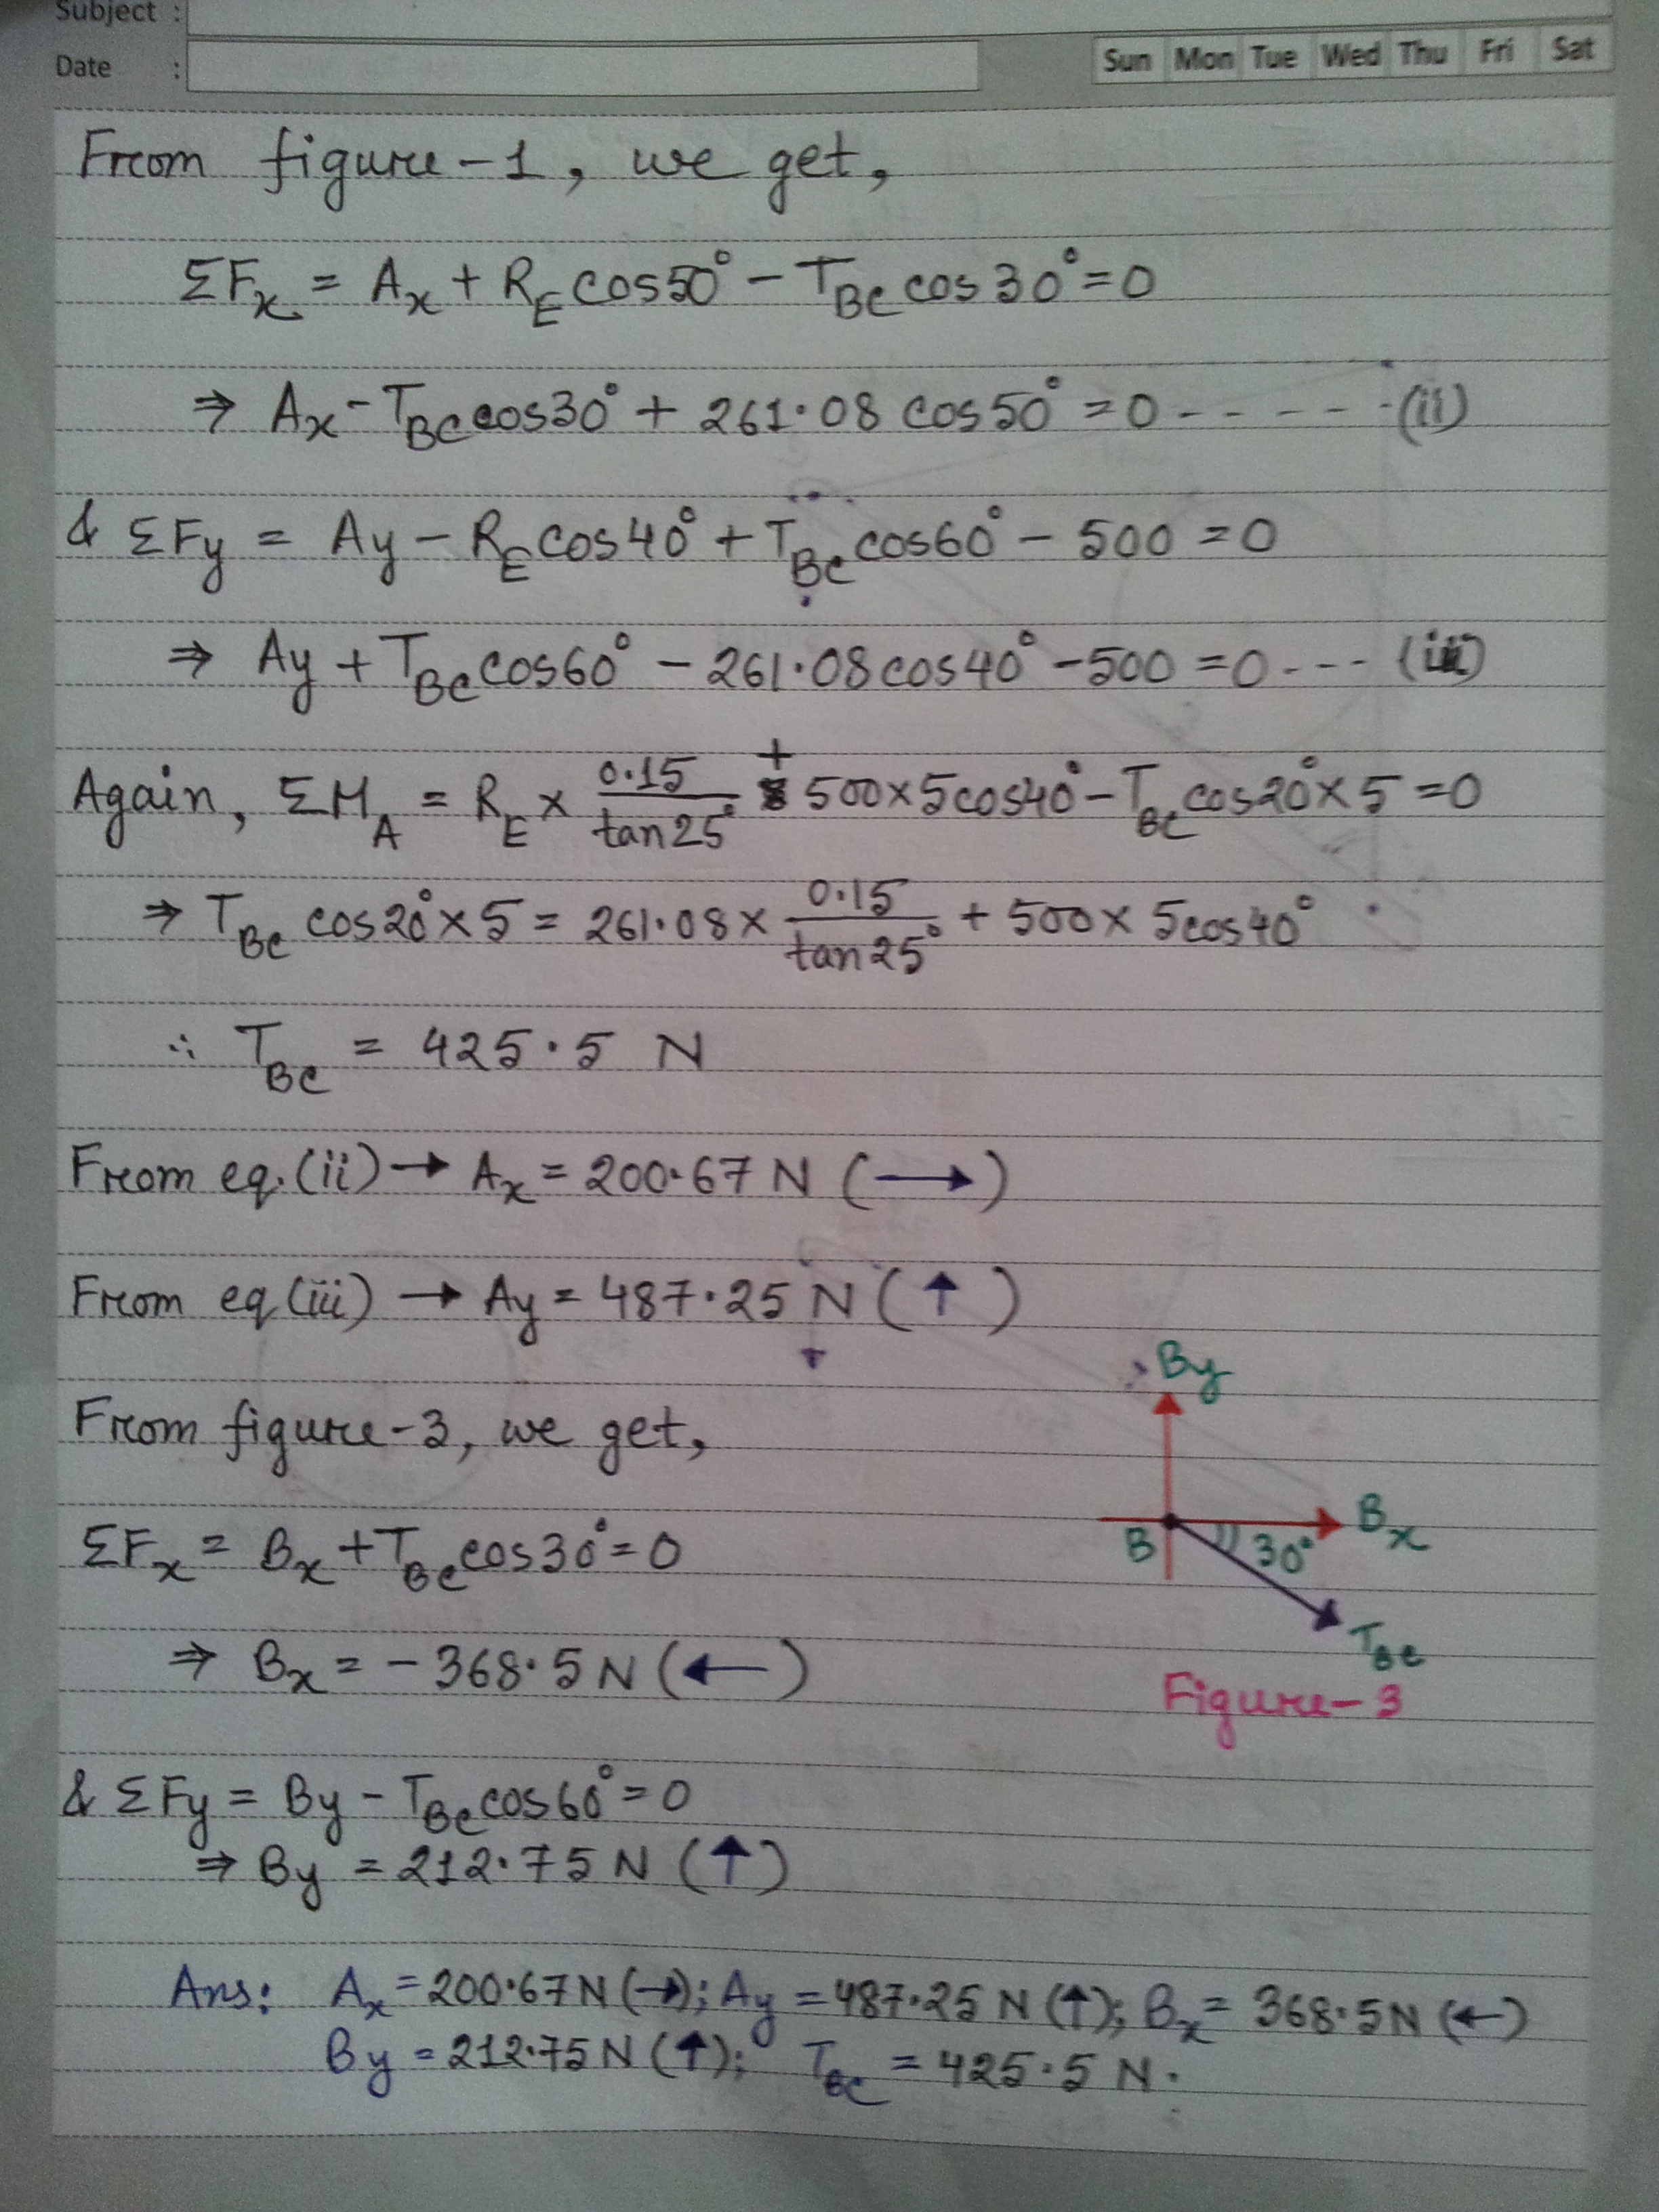 Subject :
Date :
Sun Mon Tue Wed Thu Fri Sat
From figure-1, we get,
ΣFx = Ax + RE cos50° - TBC cos30° = 0
⇒ Ax - TBC cos30° + 261.08 cos50° = 0 - - - - - (ii)
& ΣFy = Ay - RE cos40° + TBC cos60° - 500 = 0
⇒ Ay + TBC cos60° - 261.08 cos40° - 500 = 0 - - - (iii)
Again, ΣMA = RE × 0.15/tan25° + 500×5cos40° - TBC cos20°×5 = 0
⇒ TBC cos20°×5 = 261.08 × 0.15/tan25° + 500 × 5cos40°
∴ TBC = 425.5 N
From eq.(ii) → Ax = 200.67 N (→)
From eq(iii) → Ay = 487.25 N (↑)
From figure-3, we get,
ΣFx = Bx + TBC cos30° = 0
⇒ Bx = -368.5 N (←)
& ΣFy = By - TBC cos60° = 0
⇒ By = 212.75 N (↑)
By
Bx
B
30°
TBC
Figure-3
Ans: Ax = 200.67 N (→); Ay = 487.25 N (↑); Bx = 368.5 N (←)
By = 212.75 N (↑); TBC = 425.5 N.